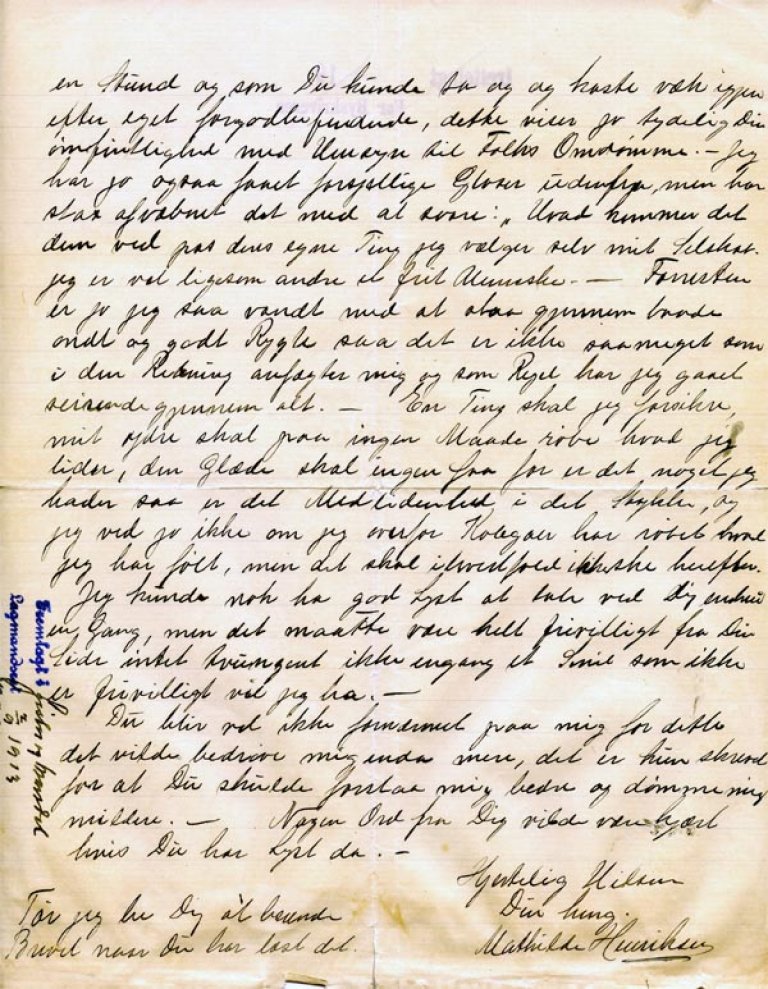 en Stund og som Du kunde ta og og kaste væk igjen
efter eget forgodtbefindende, dette viser jo tydelig Din
ømfintlighed med Hensyn til Folks Omdømme. – Jeg
har jo ogsaa faaet forsjellige Gloser udenfra, men har
staa afvæbnet det med at svare: „Hvad kommer det
dem ved pas deres egne Ting jeg vælger selv mit Selskab.
jeg er vel ligesom andre et frit Menneske. — Forresten
er jo jeg saa vandt med at staa gjennem baade
ondt og godt Rygte saa det er ikke saa meget som
i den Retning anfægter mig og som Regel har jeg gaaet
seirende gjennem alt. — En Ting skal jeg forsikre,
mit ydre skal paa ingen Maade røbe hvad jeg
lider, den Glæde skal ingen faa for er det noget jeg
hader saa er det Medlidenhed i det Stykke, og
jeg ved jo ikke om jeg overfor Kolegaer har røbet hvad
jeg har følt, men det skal i hvertfald ikke ske herefter.
Jeg kunde nok ha god Lyst at tale ved Dig endnu
en Gang, men det maatte være helt frivilligt fra Din
Side intet tvungent ikke engang et Smil som ikke
er frivilligt vil jeg ha. —
Du blir vel ikke fornærmet paa mig for dette
det vilde bedrøve mig enda mere, det er kun skrevet
for at Du skulde forstaa mig bedre og dømme mig
mildere. — Nogen Ord fra Dig vilde være kjært
hvis Du har Lyst da. —
Hjertelig Hilsen
Din heng.
Mathilde Henriksen
Tør jeg be Dig at brænde
Brevet naar Du har læst det.
Fremlagt i
9 1913